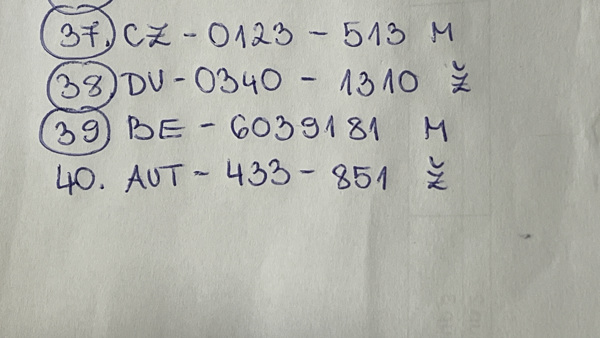 37. CZ - 0123 - 513 M
38 DV - 0340 - 1310 Ž
39 BE - 6039181 M
40. AUT - 433 - 851 Ž